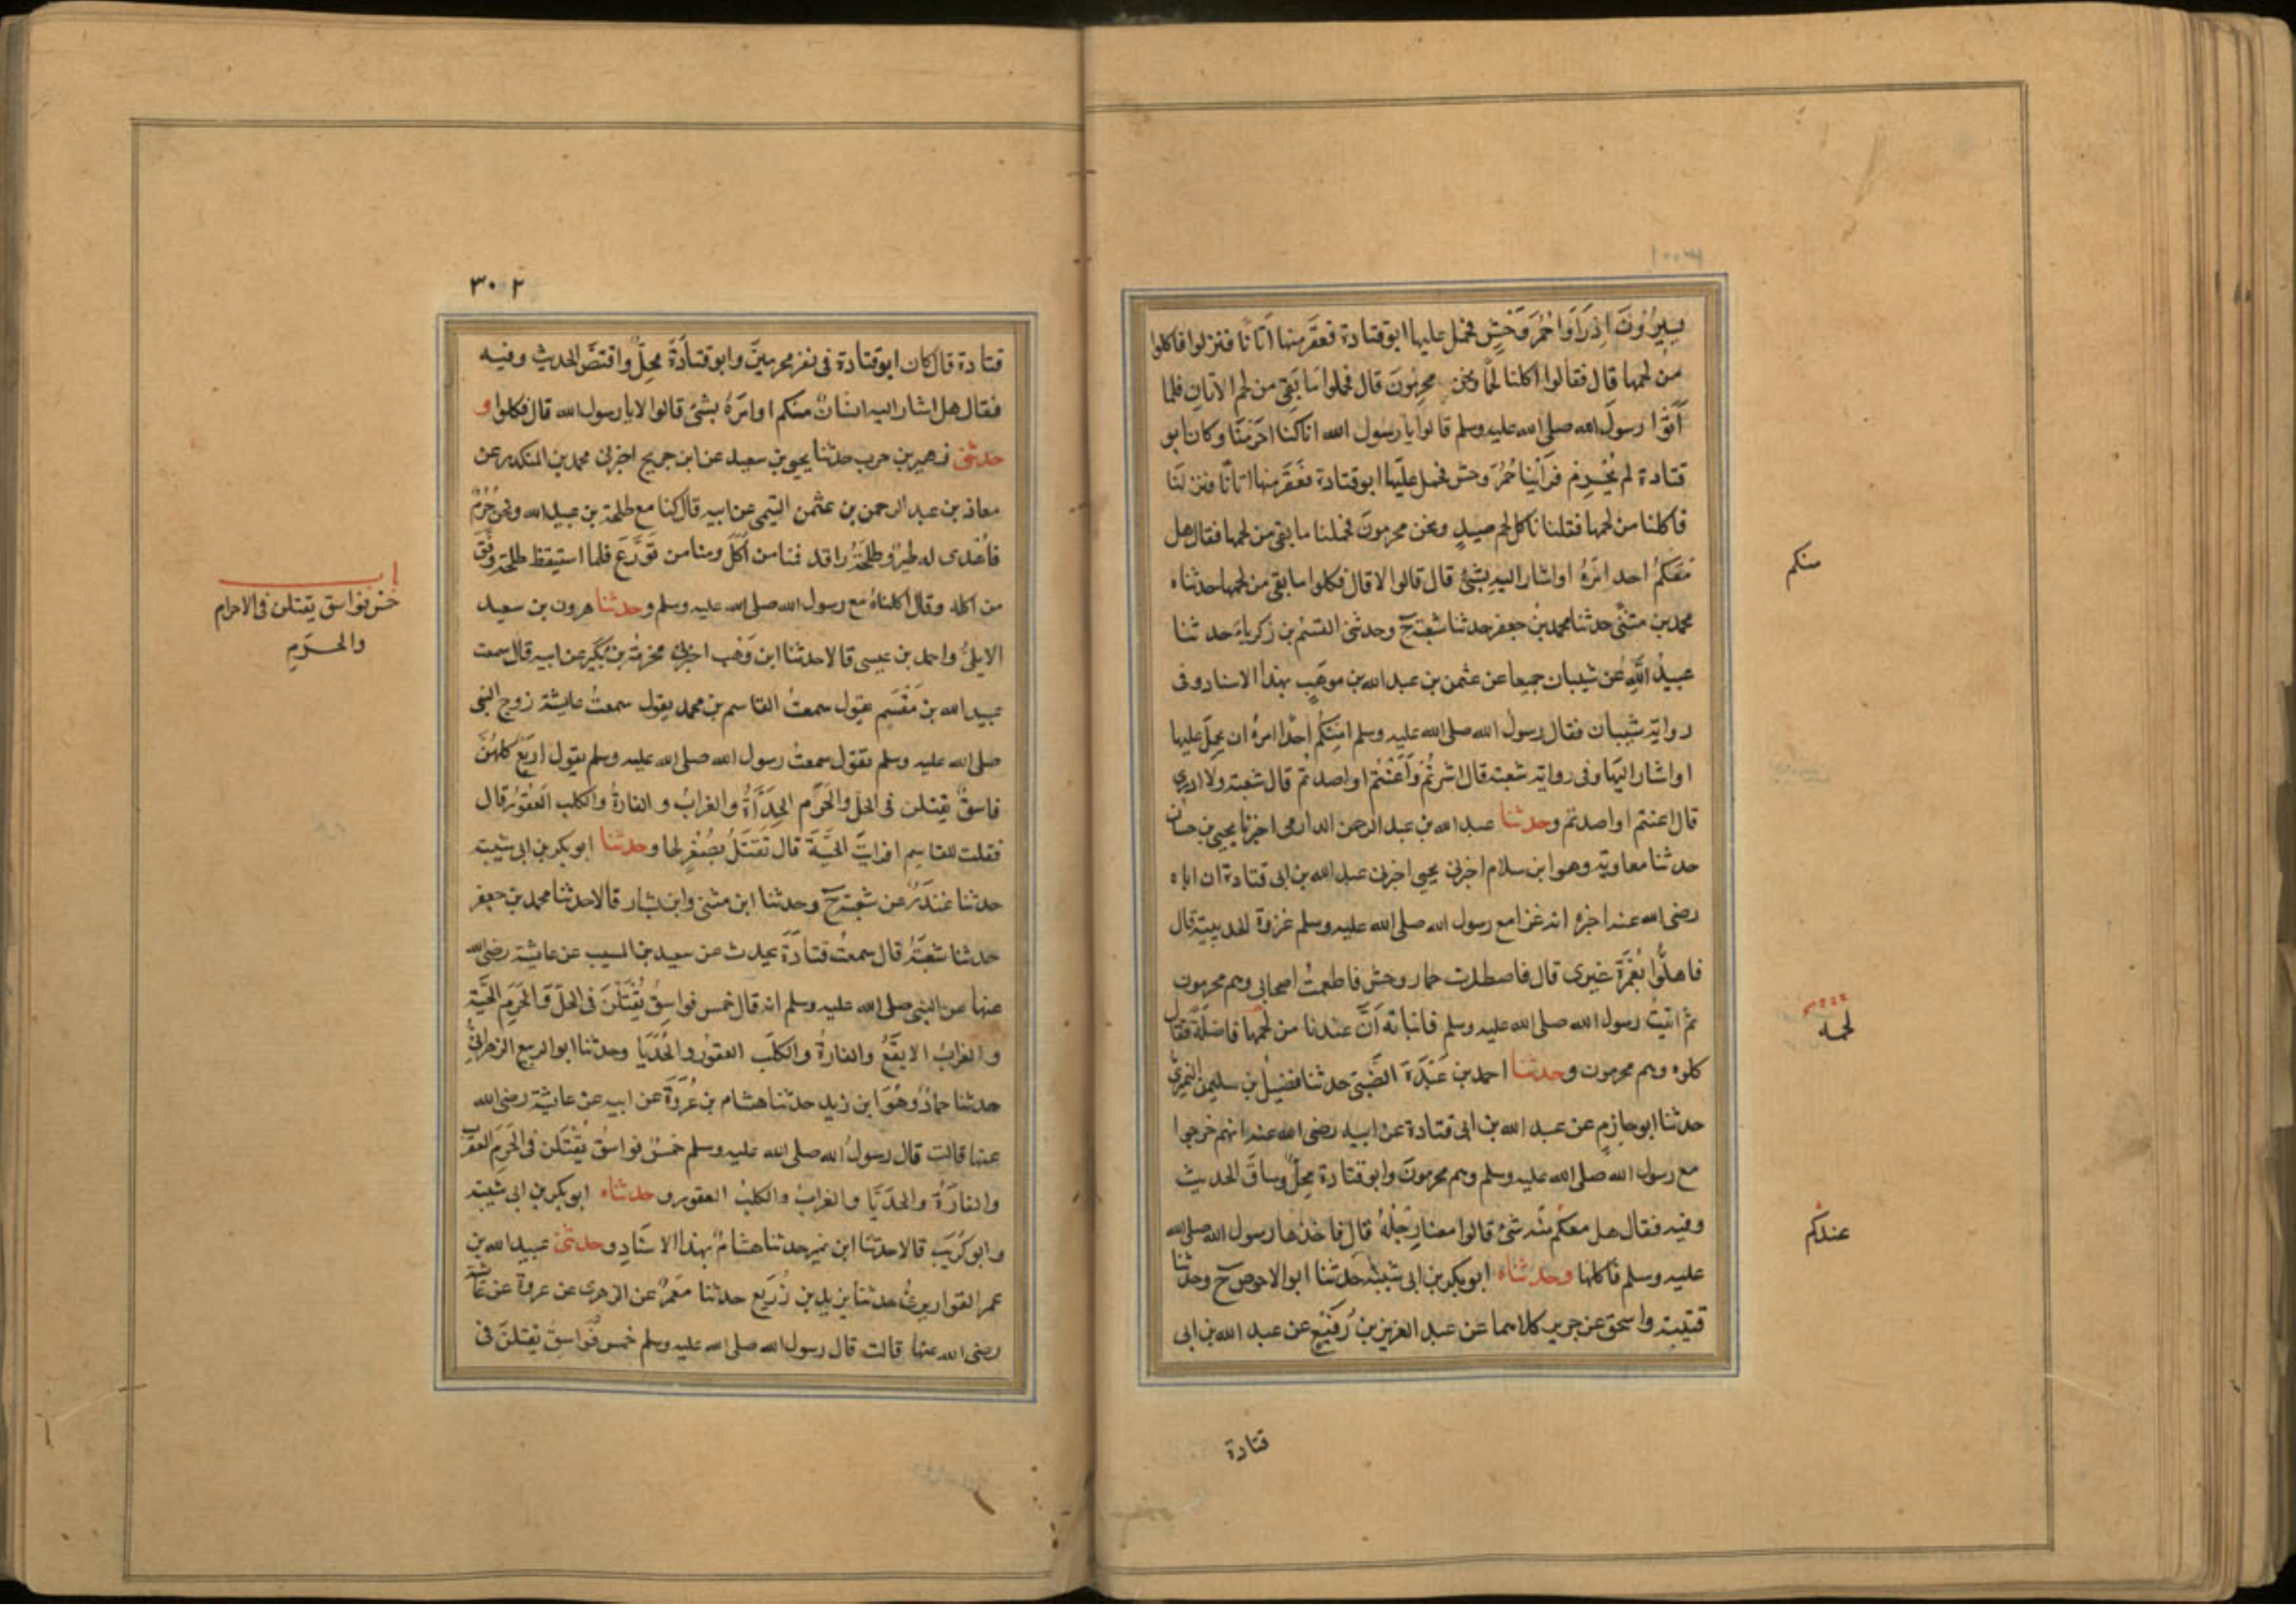 يسيرون اذ رَاَوا حُمُرَ وَحْشٍ فحمل عليها ابو قتادة فعقر منها اتانا فنزلوا فاكلوا
من لحمها قال فقالوا اكلنا لحما ونحن محرمون قال فحملوا ما بقى من لحم الاتان فلما
اَتَوْا رسول الله صلى الله عليه وسلم قالوا يا رسول الله انا كنا احرمنا وكان ابو
قتادة لم يُحْرِم فرأينا حُمُرَ وحش فحمل عليها ابو قتادة فعقر منها اتانا فنزلنا
فاكلنا من لحمها فقلنا ناكل لحم صيدٍ ونحن محرمون فحملنا ما بقى من لحمها فقال هل
معكم احد امَرَهُ او اشار اليه بشئ قال قالوا لا قال فكلوا ما بقى من لحمها حدثناه
منكم
محمد بن مثنى حدثنا محمد بن جعفر حدثنا شعبة ح وحدثنى القسم بن زكرياء حدثنا
عبيد الله عن شيبان جميعا عن عثمن بن عبد الله بن موهب بهذا الاسناد وفى
رواية شيبان فقال رسول الله صلى الله عليه وسلم امنكم احد امره ان يحمل عليها
او اشار اليها وفى رواية شعبة قال اشرتُمْ وَاَعَنْتُم او اصدتم قال شعبة ولا ادرى
قال اعنتم او اصدتم وحدثنا عبد الله بن عبد الرحمن الدارمى اخبرنا يحيى بن حسان
حدثنا معاوية وهو ابن سلام اخبرنى يحيى اخبرنى عبد الله بن ابى قتادة ان اباه
رضى الله عنه اخبره انه غزا مع رسول الله صلى الله عليه وسلم غزوة الحديبية قال
فاهلُّوا بعُمْرَة غيرى قال فاصطدت حمار وحش فاطعمت اصحابى وهم محرمون
ثم اتيت رسول الله صلى الله عليه وسلم فانباته اَنَّ عندنا من لحمها فاضلةً فقال
لحمه
كلوه وهم محرمون وحدثنا احمد بن عَبْدَة الضَّبِّى حدثنا فضيل بن سليمن النميرى
حدثنا ابو حازم عن عبد الله بن ابى قتادة عن ابيه رضى الله عنه انهم خرجوا
مع رسول الله صلى الله عليه وسلم وهم محرمون وابو قتادة محِلٌّ وساق الحديث
وفيه فقال هل معكم منه شئ قالوا معنا رِجْلُهُ قال فاخذها رسول الله صلى الله
عندكم
عليه وسلم فاكلها وحدثناه ابو بكر بن ابى شيبة حدثنا ابو الاحوص ح وحدثنا
قتيبة واسحق عن جرير كلاهما عن عبد العزيز بن رُفَيْعٍ عن عبد الله بن ابى
قتادة
٣٠٢
قتادة قال كان ابو قتادة فى نفر محرمين وابو قتادة محِلٌّ واقتصَّ الحديث وفيه
فقال هل اشار اليه انسان منكم او امَرَهُ بشئ قالوا لا يا رسول الله قال فكلوا و
حدثنى زهير بن حرب حدثنا يحيى بن سعيد عن ابن جريج اخبرنى محمد بن المنكدر عن
معاذ بن عبد الرحمن بن عثمن التيمى عن ابيه قال كنا مع طلحة بن عبيد الله ونحن حُرُمٌ
فاُهْدى له طير وطلحةُ راقد فمنا من اَكَلَ ومنا من تَوَرَّعَ فلما استيقظ طلحة وفَّق
من اكله وقال اكلناهُ مع رسول الله صلى الله عليه وسلم وحدثنا هرون بن سعيد
باب
خمس فواسق يقتلن فى الاحرام
والحَرَمِ
الايلىُّ واحمد بن عيسى قالا حدثنا ابن وَهْب اخبرنى مخرمة بن بُكَيْر عن ابيه قال سمعت
عبيد الله بن مِقْسَمٍ يقول سمعتُ القاسم بن محمد يقول سمعتُ عايشة زوج النبى
صلى الله عليه وسلم تقول سمعتُ رسول الله صلى الله عليه وسلم يقول اربَعٌ كلهُنَّ
فاسقٌ يقتلن فى الحل والحَرَم الحِدَأَةُ والغرابُ والفارةُ والكلب العَقُوْرُ قال
فقلت للقاسم افرايت الحَيَّةَ قال تُقتَلُ بصُغْرٍ لها وحدثنا ابو بكر بن ابى شيبة
حدثنا غندَرٌ عن شعبة ح وحدثنا ابن مثنى وابن بشار قالا حدثنا محمد بن جعفر
حدثنا شعبَةُ قال سمعتُ قتادَةَ يحدث عن سعيد بن المسيب عن عايشة رضى الله
عنها عن النبى صلى الله عليه وسلم انه قال خمس فواسِقُ يُقْتَلْنَ فى الحلّ والحَرَمِ الحَيَّة
والغرابُ الابقَعُ والفارةُ والكلبُ العقورُ والحُدَيَّا وحدثنا ابو الربيع الزهرانىُّ
حدثنا حمادٌ وهُوَ ابن زيد حدثنا هشام بن عُرْوَةَ عن ابيه عن عايشة رضى الله
عنها قالت قال رسولُ الله صلى الله عليه وسلم خمْسٌ فواسِقُ يُقْتَلْنَ فى الحَرَمِ العقرب
والفارَةُ والحُدَيَّا والغرابُ والكلبُ العقور وحدثناه ابو بكر بن ابى شيبة
وابو كُرَيْبٍ قالا حدثنا ابن نمير حدثنا هشامٌ بهذا الاسنادِ وحدثنى عبيد الله بن
عمر القواريرىُّ حدثنا يزيد بن زُرَيع حدثنا مَعْمَرٌ عن الزهرى عن عروة عن عائشة
رضى الله عنها قالت قال رسول الله صلى الله عليه وسلم خمس فَوَاسِقَ يقتلنَ فى